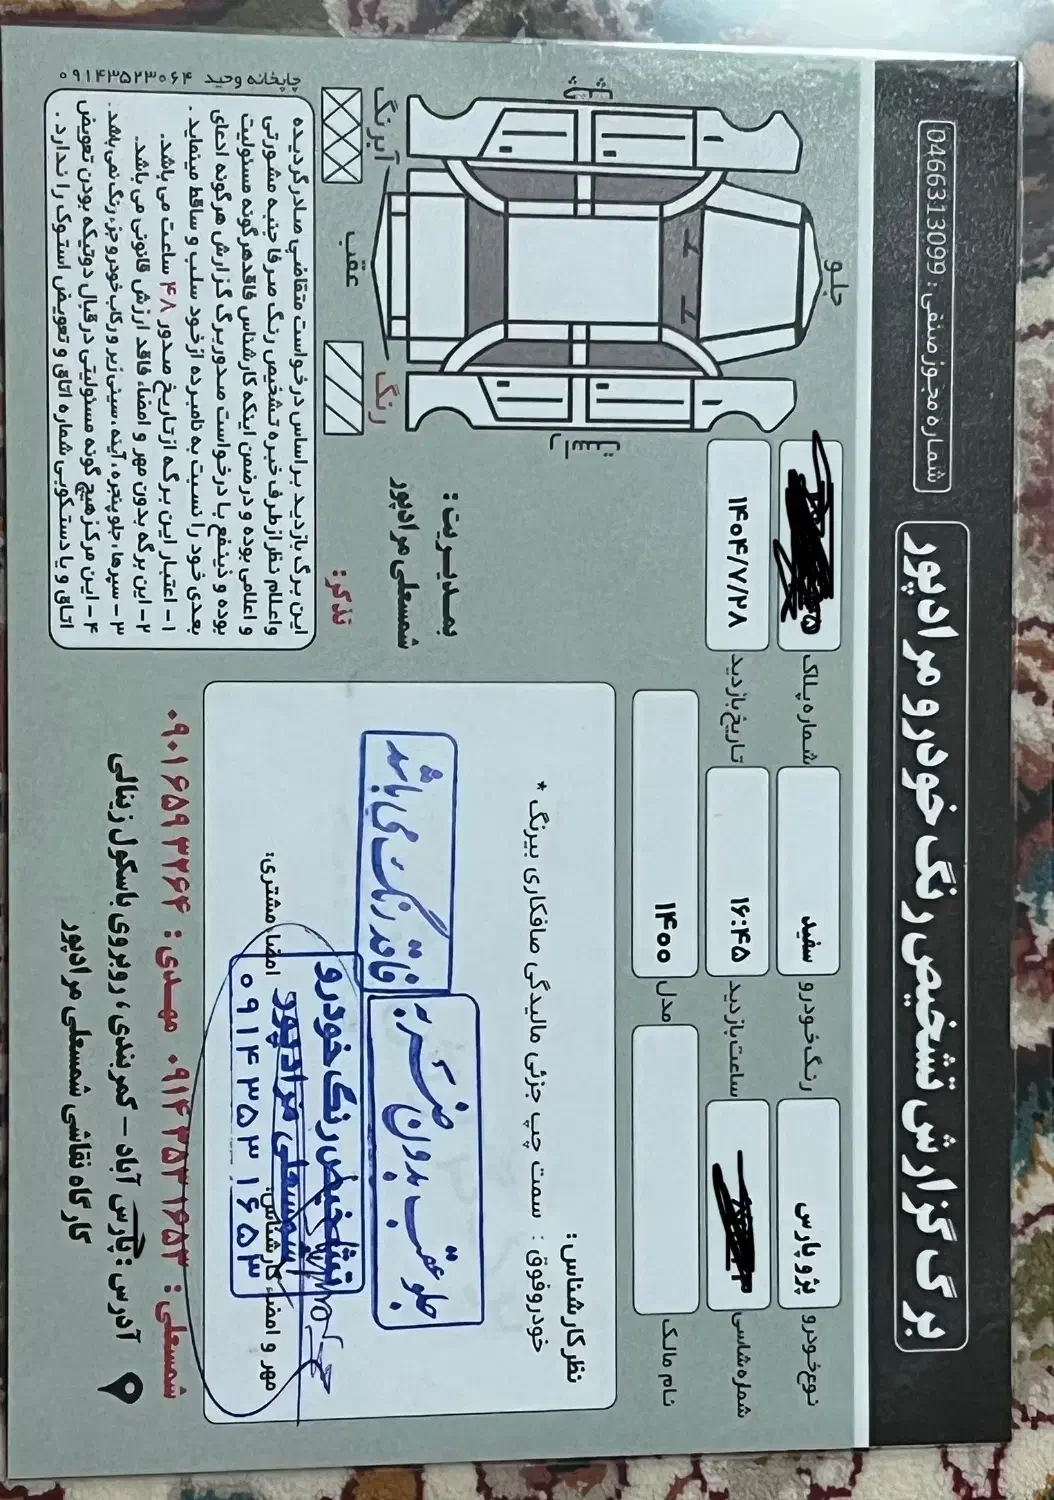 برگ گزارش تشخیص رنگ خودرو مرادپور
شماره مجوز صنفی : 0466313099
نوع خودرو
پژو پارس
رنگ خودرو
سفید
شماره پلاک
شماره شاسی
ساعت بازدید
۱۶:۴۵
تاریخ بازدید
۱۴۰۴/۷/۲۸
نام مالک
مدل
۱۴۰۰
جلو
عقب
آبرنگ
رنگ
نظر کارشناس:
خودرو فوق : سمت چپ جزئی مالیدگی صافکاری بیرنگ *
جلو عقب بدون ضربه
فاقد رنگ می باشد
تشخیص رنگ خودرو
شمسعلی مرادپور
۰۹۱۴۳۵۳۱۶۵۳
مهر و امضاء کارشناس:
امضاء مشتری:
بمدیریت :
شمسعلی مرادپور
تذکر:
این برگ بازدید بر اساس درخواست متقاضی صادر گردیده
و اعلام نظر از طرف خبره تشخیص رنگ صرفا جنبه مشورتی
و اعلامی بوده و در ضمن اینکه کارشناس فاقد هرگونه مسئولیت
بوده و ذینفع با درخواست صدور برگ گزارش هرگونه ادعای
بعدی خود را نسبت به نامبرده از خود سلب و ساقط مینماید .
۱- اعتبار این برگه از تاریخ صدور ۴۸ ساعت می باشد.
۲- این برگه بدون مهر و امضاء فاقد ارزش قانونی می باشد.
۳- سپرها، جلو پنجره، آینه، سینی زیر و رکاب خودرو جزء رنگ نمی باشد.
۴- این مرکز هیچ گونه مسئولیتی در قبال دوتیکه بودن تعویض
اتاق و یا دستکوبی شماره اتاق و تعویض استوک را ندارد .
چاپخانه وحید ۰۹۱۴۳۵۲۳۰۶۴
شمسعلی : ۰۹۱۴۳۵۳۱۶۵۳ مهدی : ۰۹۰۱۶۵۹۳۲۶۴
آدرس : پارس آباد - کمربندی ، روبروی باسکول زینالی
کارگاه نقاشی شمسعلی مرادپور